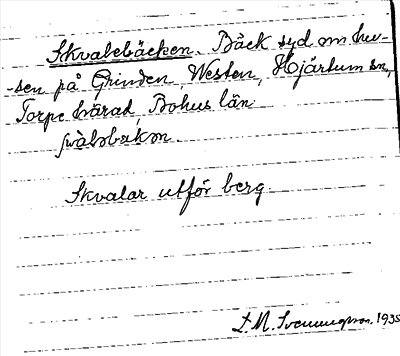 Skvalebäcken. Bäck syd om hu-
-sen på Grinden, Westen, Hjärtum sn,
Torpe härad, Bohus län
Skvalar utför berg.
L. M. Svenungsson. 1935